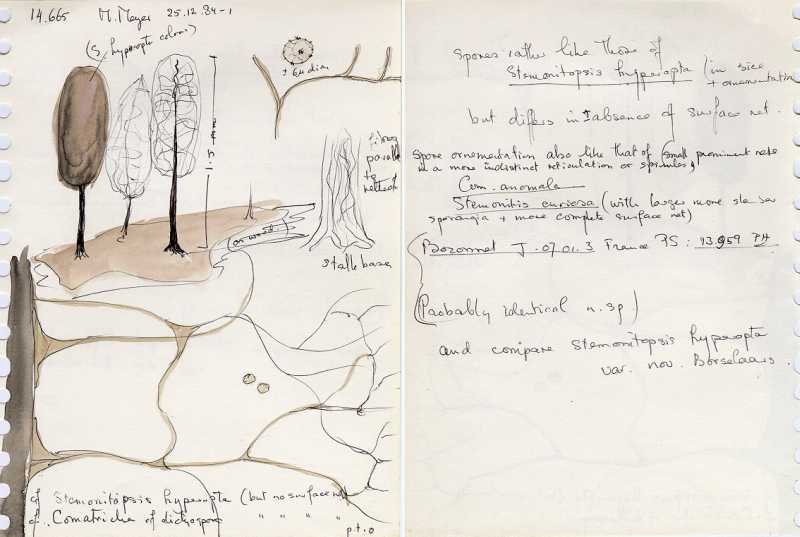 14.665 M. Meyer 25.12.84-1
(S. hyperopta colour)
on wood
parallel
to
stalk base
cf Stemonitopsis hyperopta (but no surface net)
cf. Comatricha cf dictyospora " " " "
p.t.o
spores rather like those of
Stemonitopsis hyperopta (in size
+ ornementation
but differs in absence of surface net.
spore ornementation also like that of (small prominent nets
in a more indistinct reticulation or spinules)
Com. anomala
Stemonitis curiosa (with larger more slender
sporangia + more complete surface net)
Bozonnet J. 07.01.3 France PS: 13.959
(Probably identical n. sp)
and compare Stemonitopsis hyperopta
var. nov. Borselaars